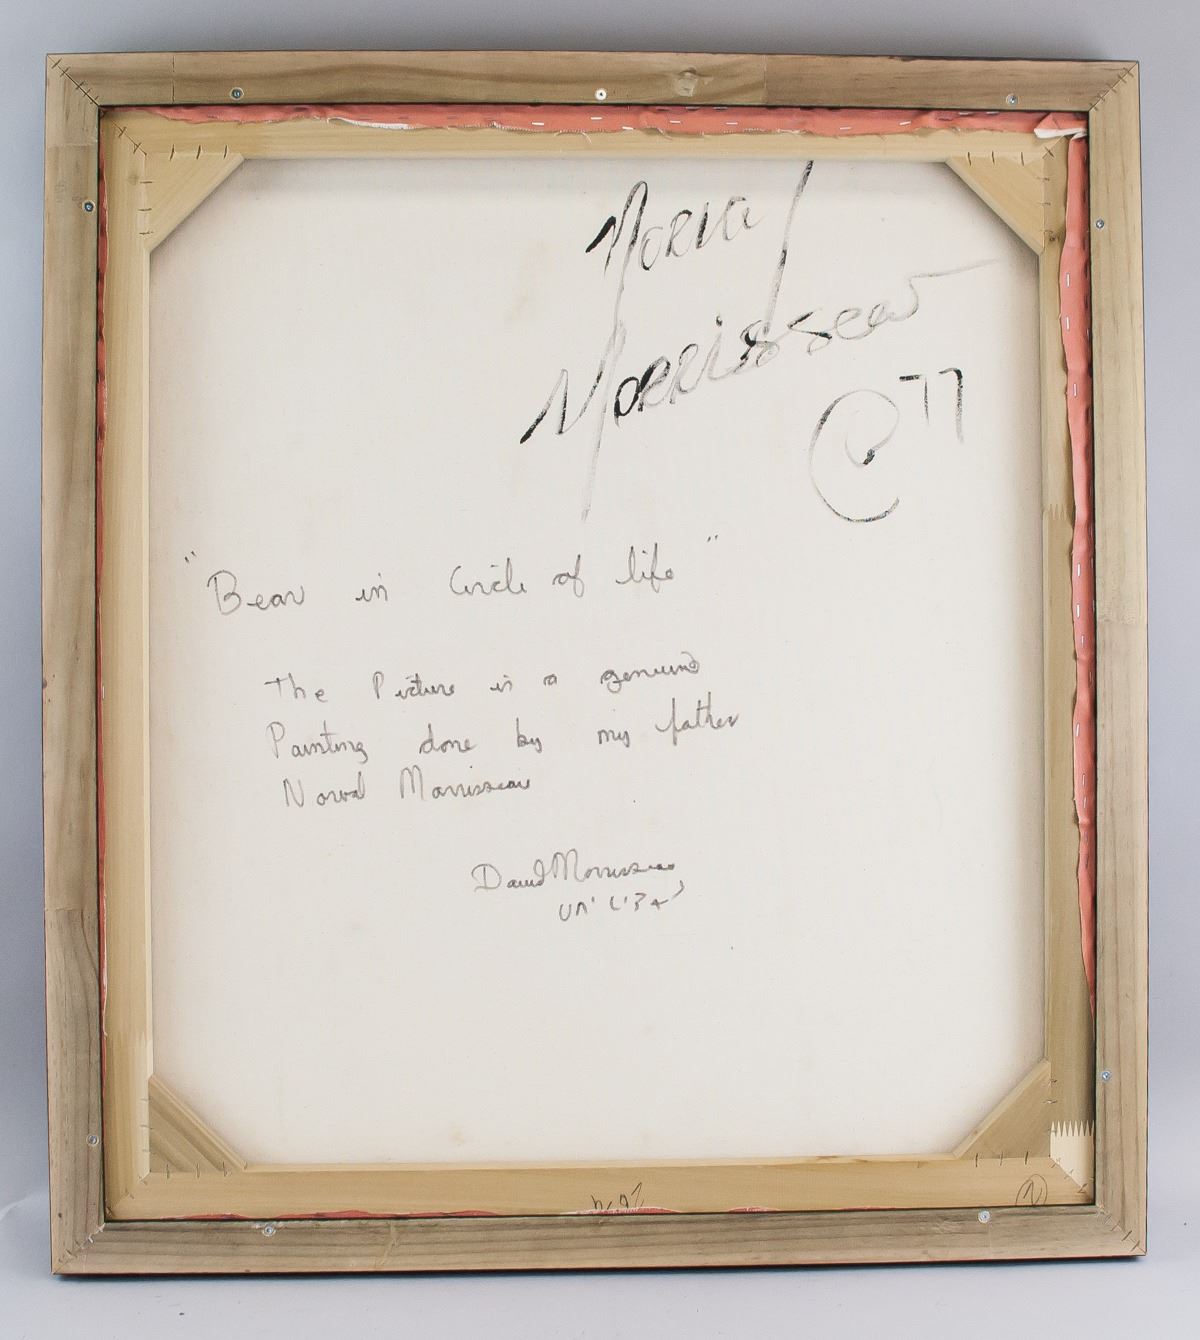 Norval
Morrisseau
© 77
"Bear in Circle of life"
The Picture is a genuine
Painting done by my father
Norval Morrisseau
David Morrisseau